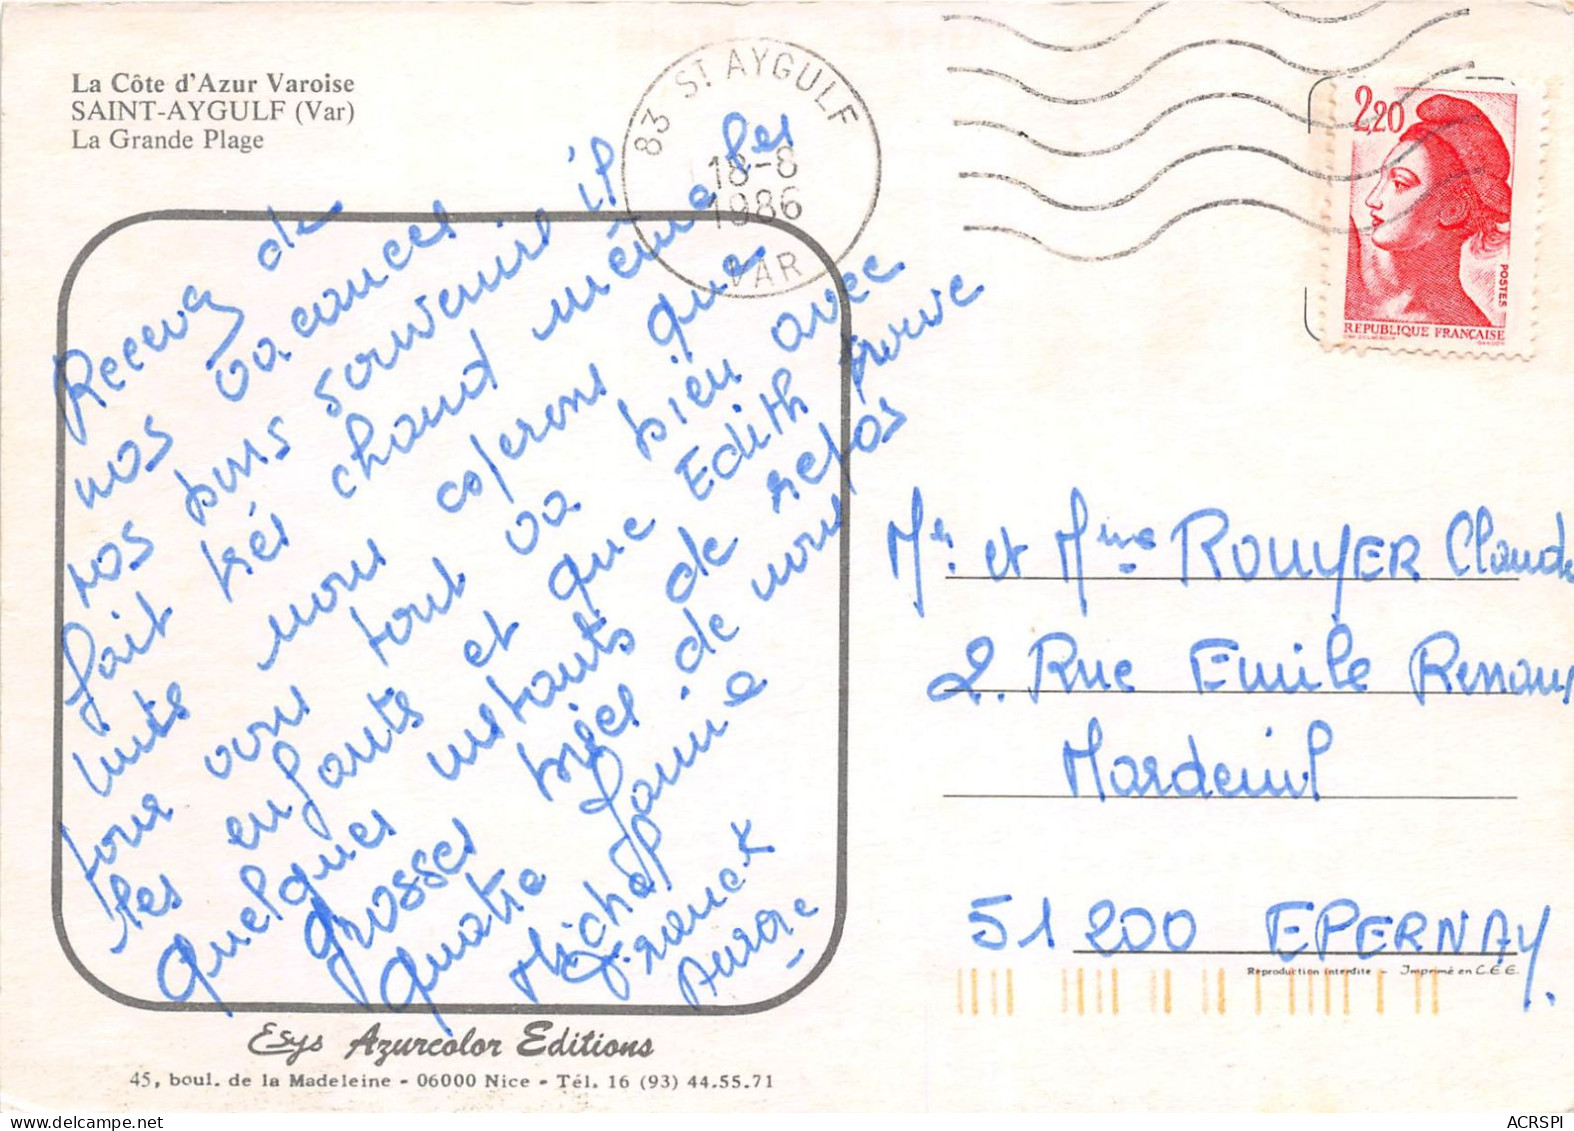 La Côte d'Azur Varoise
SAINT-AYGULF (Var)
La Grande Plage
83 ST AYGULF
18-8
1986
VAR
2,20
POSTES
REPUBLIQUE FRANÇAISE
Recevez de
nos vacances
nos bons souvenirs il
fait très chaud même les
nuits nous espérons que
pour vous tout va bien avec
les enfants et que Edith
quelques instants de repos
grosses bises de nous
quatre
Michel
France
Aurore
Mr et Mme ROUYER Claude
2. Rue Emile Renaux
Mardeuil
51 200 EPERNAY.
Reproduction interdite - Imprimé en C.E.E.
Esys Azurcolor Editions
45, boul. de la Madeleine - 06000 Nice - Tél. 16 (93) 44.55.71
ACRSPI